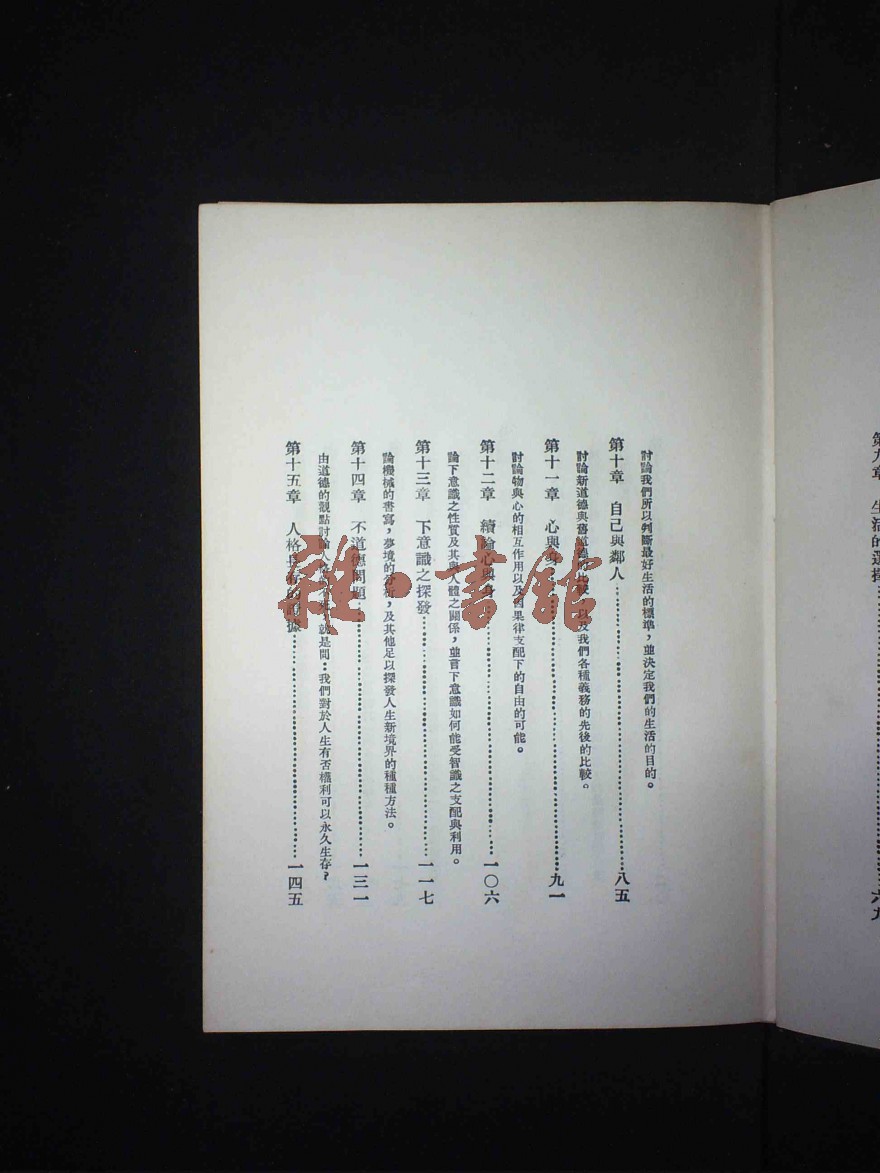 第九章　生活的選擇……六九
討論我們所以判斷最好生活的標準，並決定我們的生活的目的。
第十章　自己與鄰人……八五
討論新道德與舊道德的比較，以及我們各種義務的先後的比較。
第十一章　心與身……九一
討論物與心的相互作用以及因果律支配下的自由的可能。
第十二章　續論心與身……一〇六
論下意識之性質及其與人體之關係，並言下意識如何能受智識之支配與利用。
第十三章　下意識之探發……一一七
論機械的書寫，夢境的分析，及其他足以探發人生新境界的種種方法。
第十四章　不道德問題……一三一
由道德的觀點討論人 就是問・我們對於人生有否權利可以永久生存？
第十五章　人格長存的證據……一四五
雜・書館